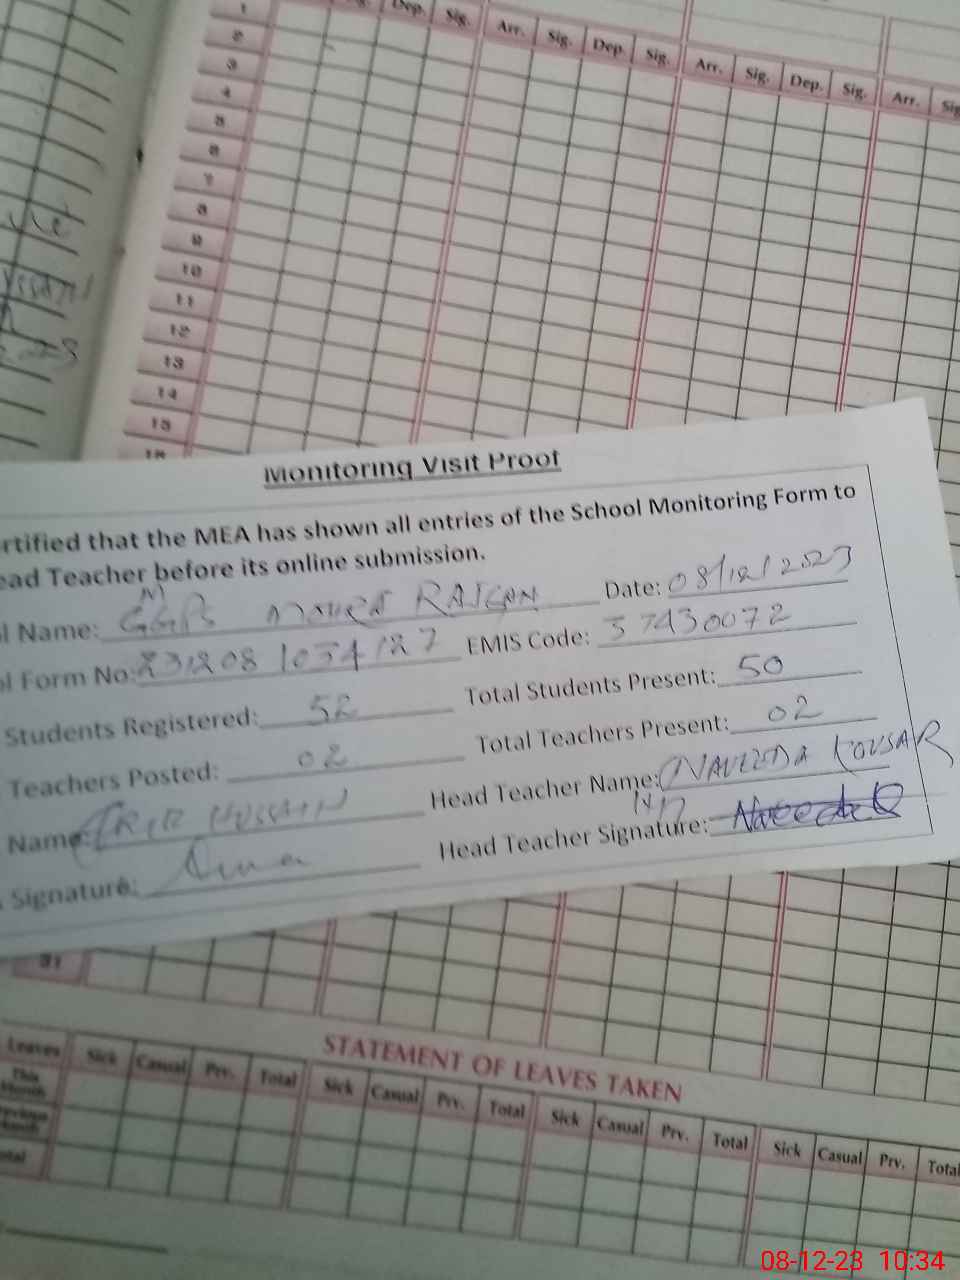 1 Dep. Sig. Arr. Sig. Dep. Sig. Arr. Sig. Dep. Sig. Arr. Sig
2
3
4
5
6
7
8
9
10
11
12
13
14
15
16
Monitoring Visit Proof
rtified that the MEA has shown all entries of the School Monitoring Form to
ead Teacher before its online submission.
l Name: RAJGAN Date: 08/12/2023
ol Form No: EMIS Code: 37430072
Students Registered: 52 Total Students Present: 50
Teachers Posted: 02 Total Teachers Present: 02
Name: HUSSAIN Head Teacher Name: NAVEEDA KOUSAR
Signature: Head Teacher Signature: Naveeda
31
STATEMENT OF LEAVES TAKEN
Leaves Sick Casual Prv. Total Sick Casual Prv. Total Sick Casual Prv. Total Sick Casual Prv. Total
This
Month
08-12-23 10:34